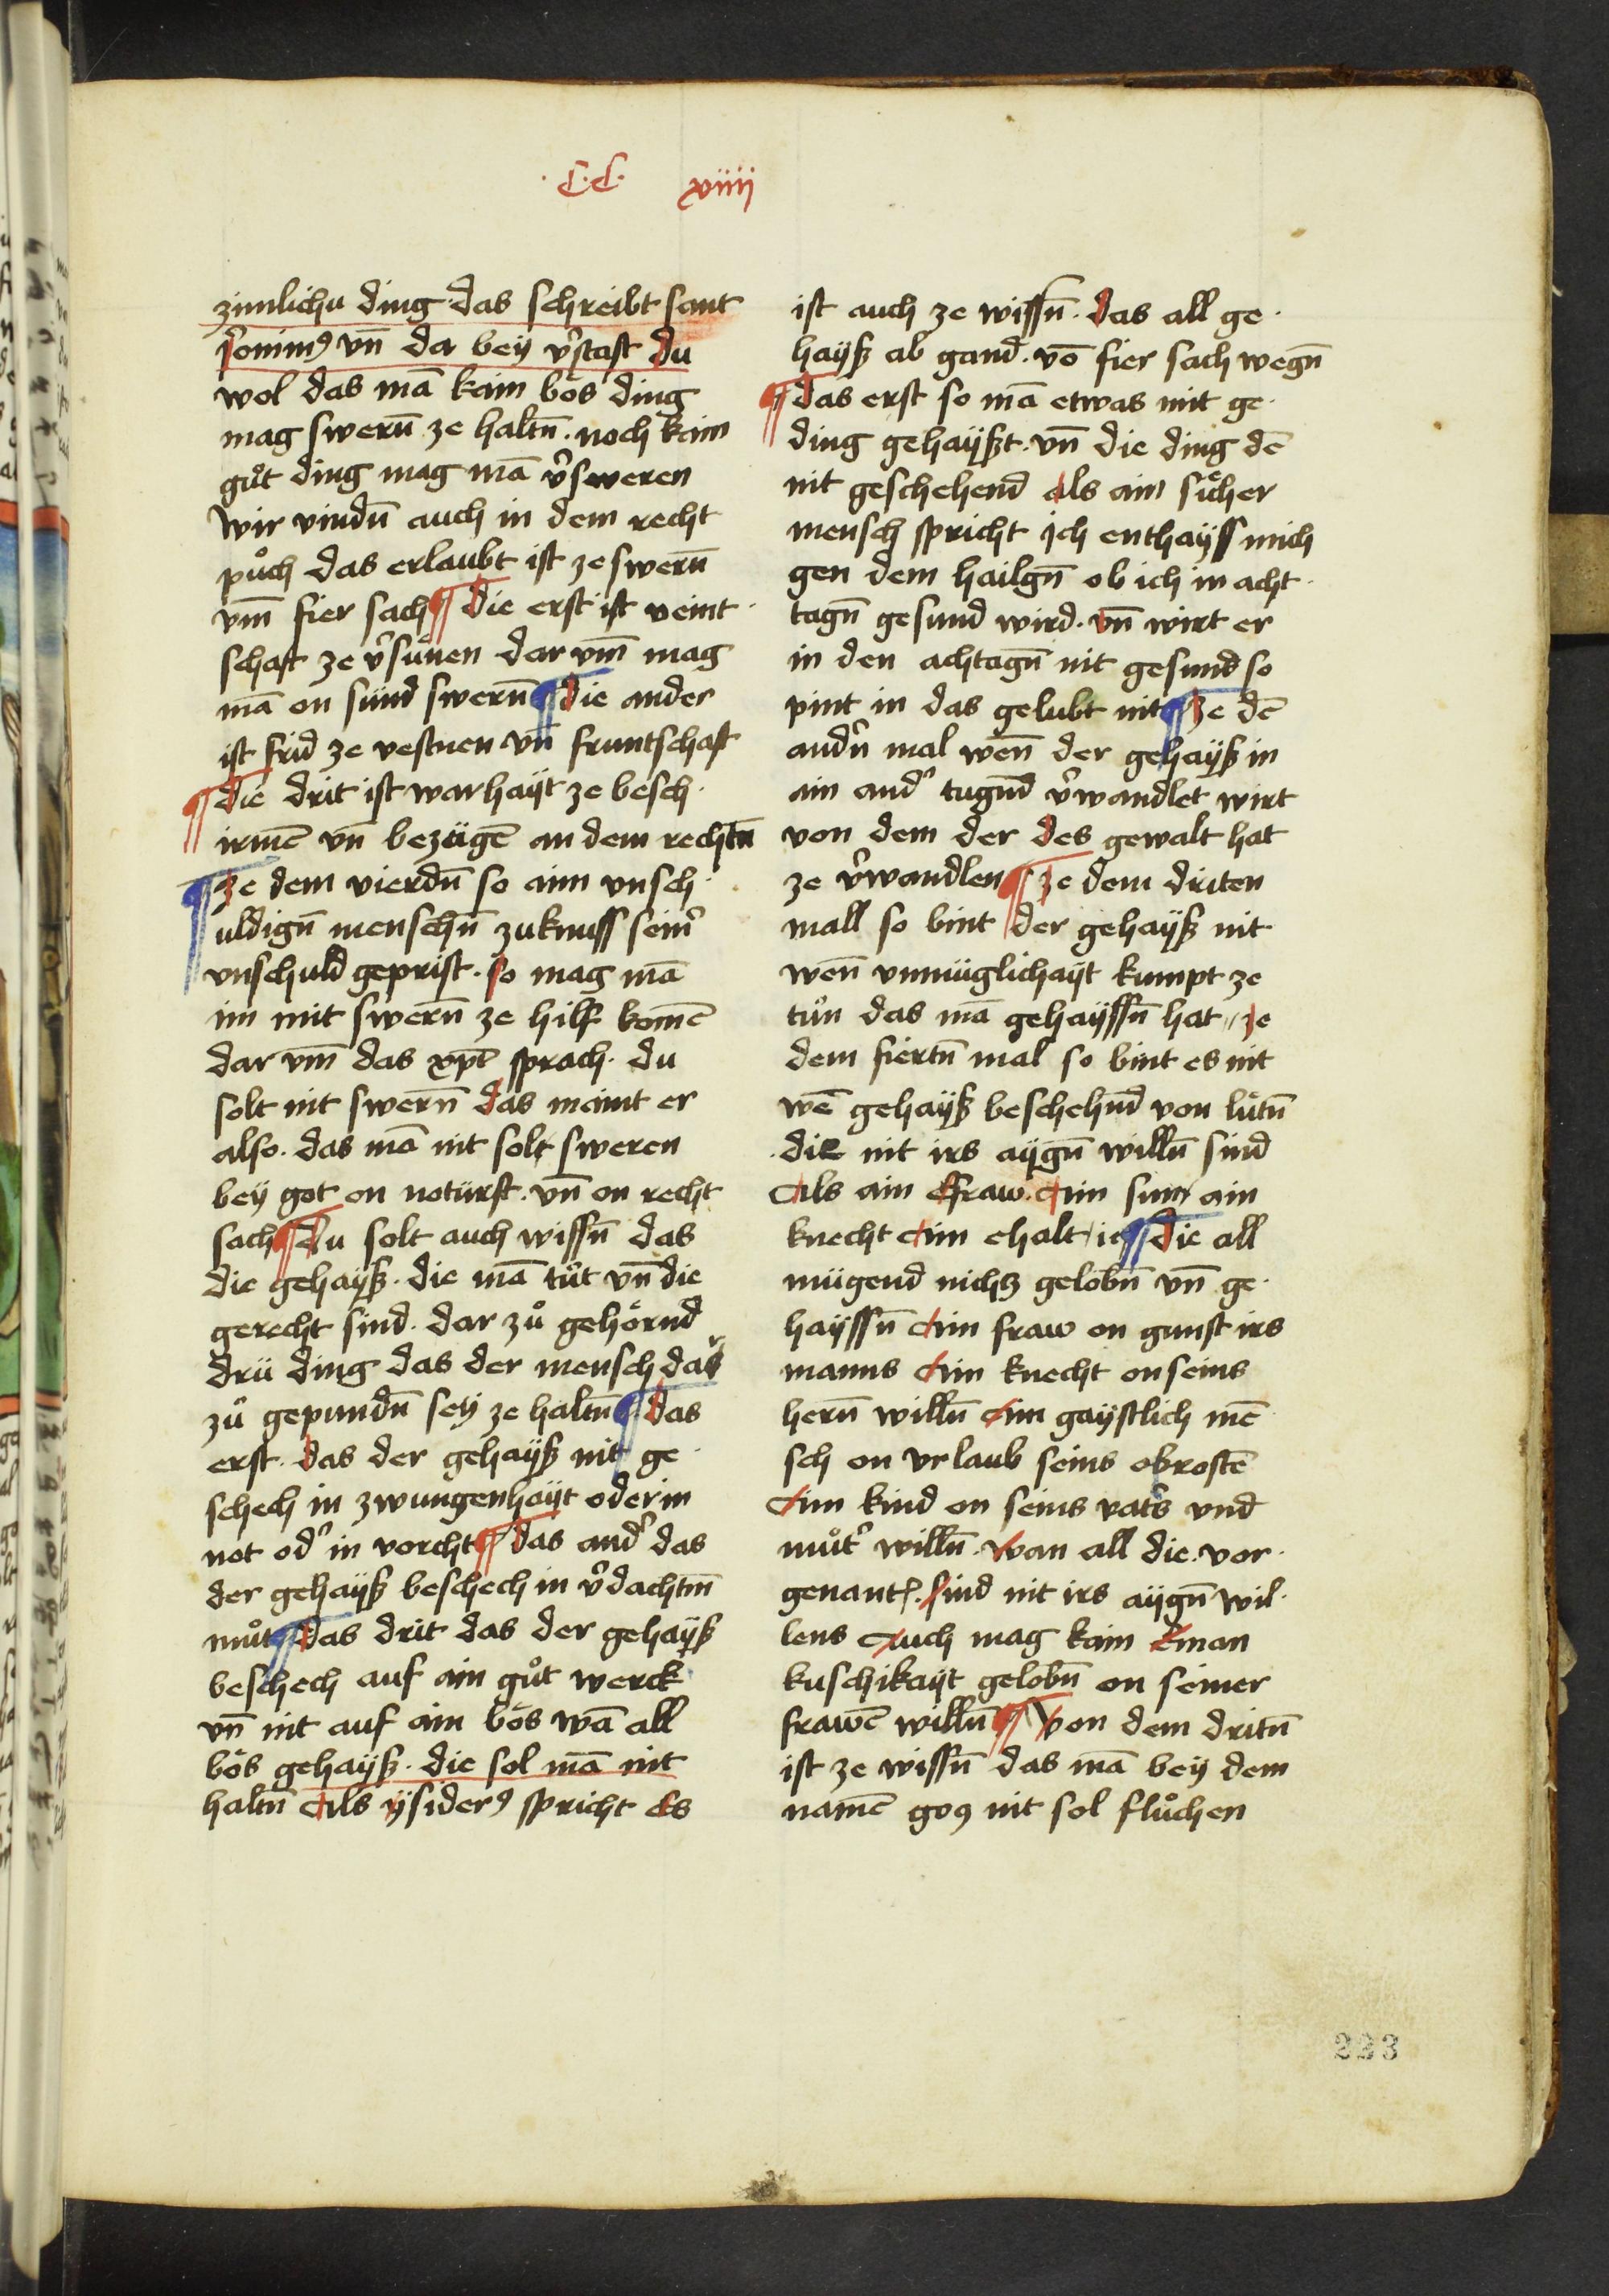 ·C·C· xviiij
zimlichu ding · das schreibt sant
Jeronimꝰ vn̄ da bey v̾stast du
wol das mā kain bös ding
mag swern̄ ze haltn̄ · noch kain
gůt ding mag mā v̾sweren
Wir vindn̄ auch in dem recht
půch das erlaubt ist ze swern̄
vm̄ fier sach ¶ Die erst ist veint
schaft ze v̾sůnen dar vm̄ mag
mā on sünd swern̄ ¶ die ander
ist frid ze vestnen vn̄ fruntschaft
¶ die drit ist warhayt ze besch·
irmē vn̄ bezügē an dem rechtn̄
¶ ze dem vierdn̄ so aim vnsch·
uldign̄ menschn̄ zuknuss seim̾
vnschuld geprist · so mag mā
im mit swern̄ ze hilf komē
dar vm̄ das xp̄t sprach · du
solt nit swern̄ das maint er
also · das mā nit solt sweren
bey got on notürft · vn̄ on recht
sach ¶ Du solt auch wissn̄ das
die gehayß · die mā tůt vn̄ die
gerecht sind · dar zů gehörnd
drü ding das der mensch dar
zů gepundn̄ sey ze haltn̄ ¶ das
erst · das der gehayß nit ge·
schech in zwungenhayt oder in
not od̾ in vorcht ¶ das and̾ das
der gehayß beschech in v̾dachtm̄
můt ¶ das drit das der gehayß
beschech auf ain gůt werck
vn̄ nit auf ain bös wā all
bös gehayß · die sol mā nit
haltn̄ Als ysiderꝰ spricht Es
ist auch ze wissn̄ · das all ge·
hayß ab gand · vō fier sach wegn̄
¶ das erst so mā etwas mit ge·
ding gehayßt · vn̄ die ding dē
nit geschehend als ain sicher
mensch spricht ich enthayss mich
gen dem hailgn̄ ob ich in acht
tagn̄ gesund wird · vn̄ wirt er
in den achtagn̄ nit gesund so
pint in das gelubt nit ¶ ze dē
andn̄ mal wen̄ der gehayß in
ain and̾ tugn̄d v̾wandlet wirt
von dem der des gewalt hat
ze v̾wandlen ¶ ze dem driten
mall so bint der gehayß nit·
wen̄ vnmüglichayt kumpt ze
tůn das mā gehayssn̄ hat ze
dem fiertn̄ mal so bint es nit
wē gehayß beschehnd von lütn̄
die nit irs aygn̄ willn̄ sind
Als ain Efraw · Ain sun ain
knecht Ain ehalt ic ¶ Die all
mügend nichz gelobn̄ vn̄ ge·
hayssn̄ Ain fraw on gunst irs
manns Ain knecht on seins
hern̄ willn̄ Ain gaystlich mē
sch on vrlaub seins obrostē
Ain kind on seins vat̾s vnd
můt̾ willn̄ · Wan all die · vor·
genant · sind nit irs aygn̄ wil·
lens Auch mag kain Eman
kuschikayt gelobn̄ on seiner
frawē willn̄ ¶ Von dem dritn̄
ist ze wissn̄ das mā bey dem
namē goꝫ nit sol flůchen
223